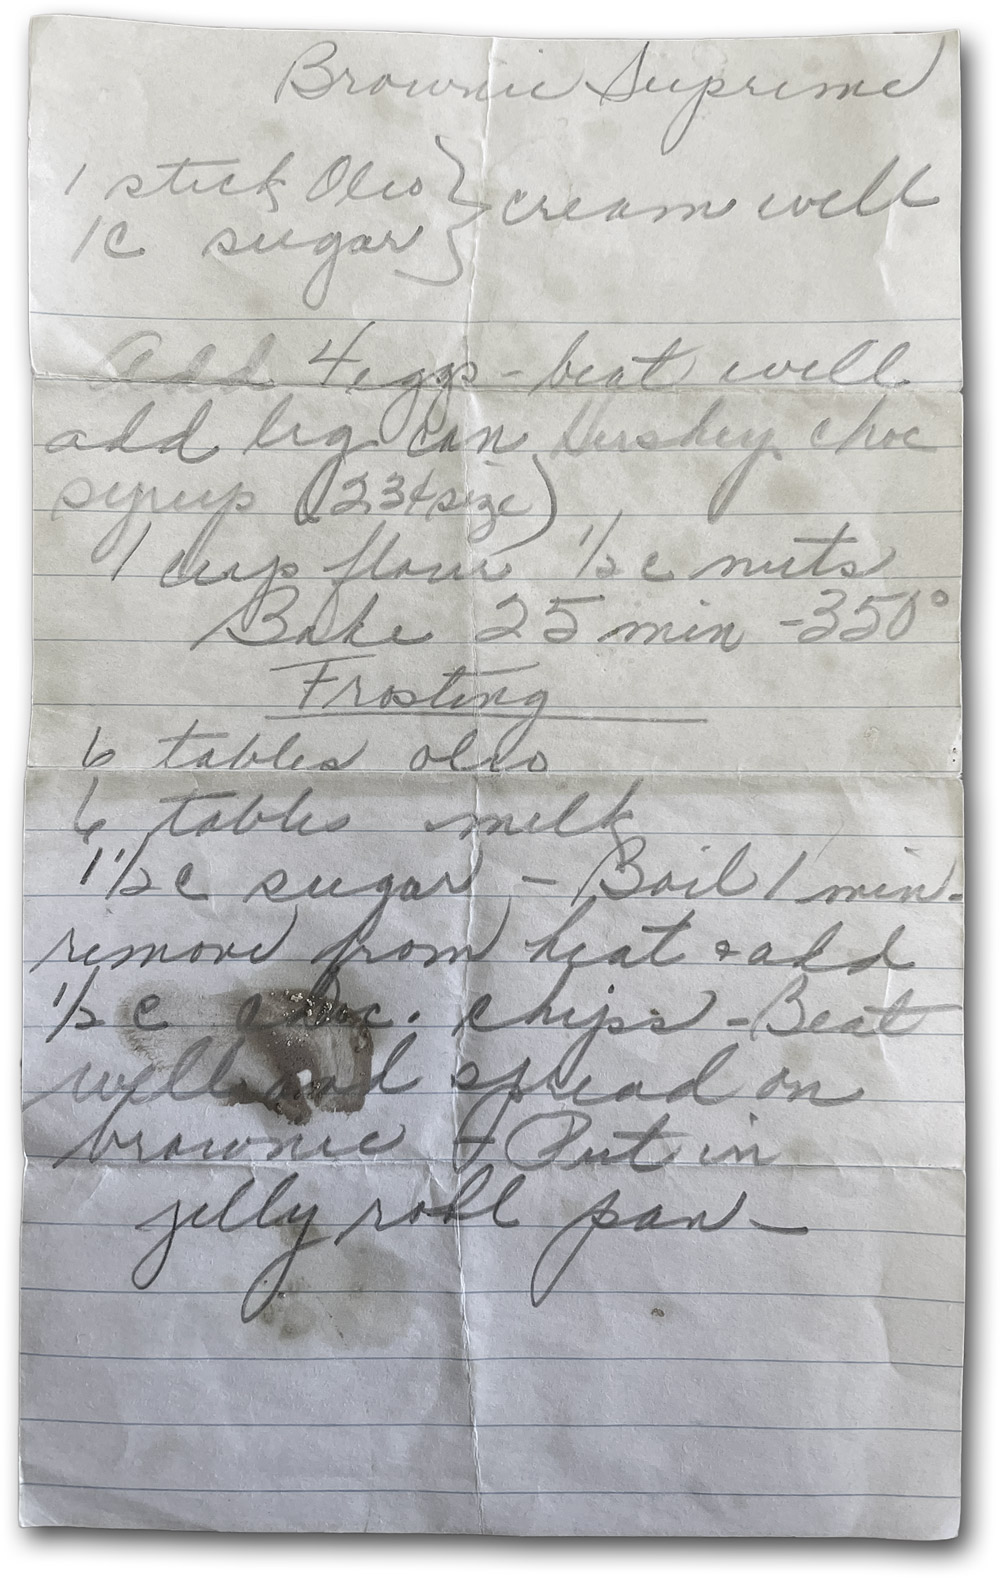 Brownie Supreme
1 stick Oleo } cream well
1c sugar
Add 4 eggs - beat well
add big can Hershey choc
syrup (23¢ size)
1 cup flour 1/2 c nuts
Bake 25 min - 350°
Frosting
6 tables oleo
6 tables milk
1 1/2 c sugar - Boil 1 min -
remove from heat & add
1/2 c choc. chips - Beat
well and spread on
brownie - Put in
jelly roll pan -